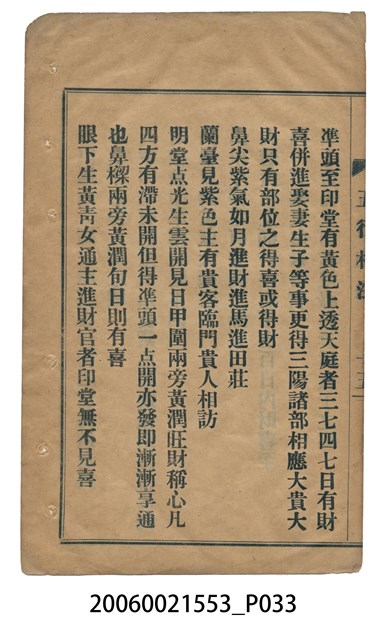 準頭至印堂有黃色上透天庭者三七四七日有財
喜併進娶妻生子等事更得三陽諸部相應大貴大
財只有部位之得喜或得財
鼻尖紫氣如月進財進馬進田莊
蘭臺見紫色主有貴客臨門貴人相訪
明堂点光生雲開見日甲圍兩旁黃潤旺財稱心凡
四方有滯未開但得準頭一点開亦發即漸漸享通
也鼻樑兩旁黃潤旬日則有喜
眼下生黃靑女通主進財官者印堂無不見喜
20060021553_P033